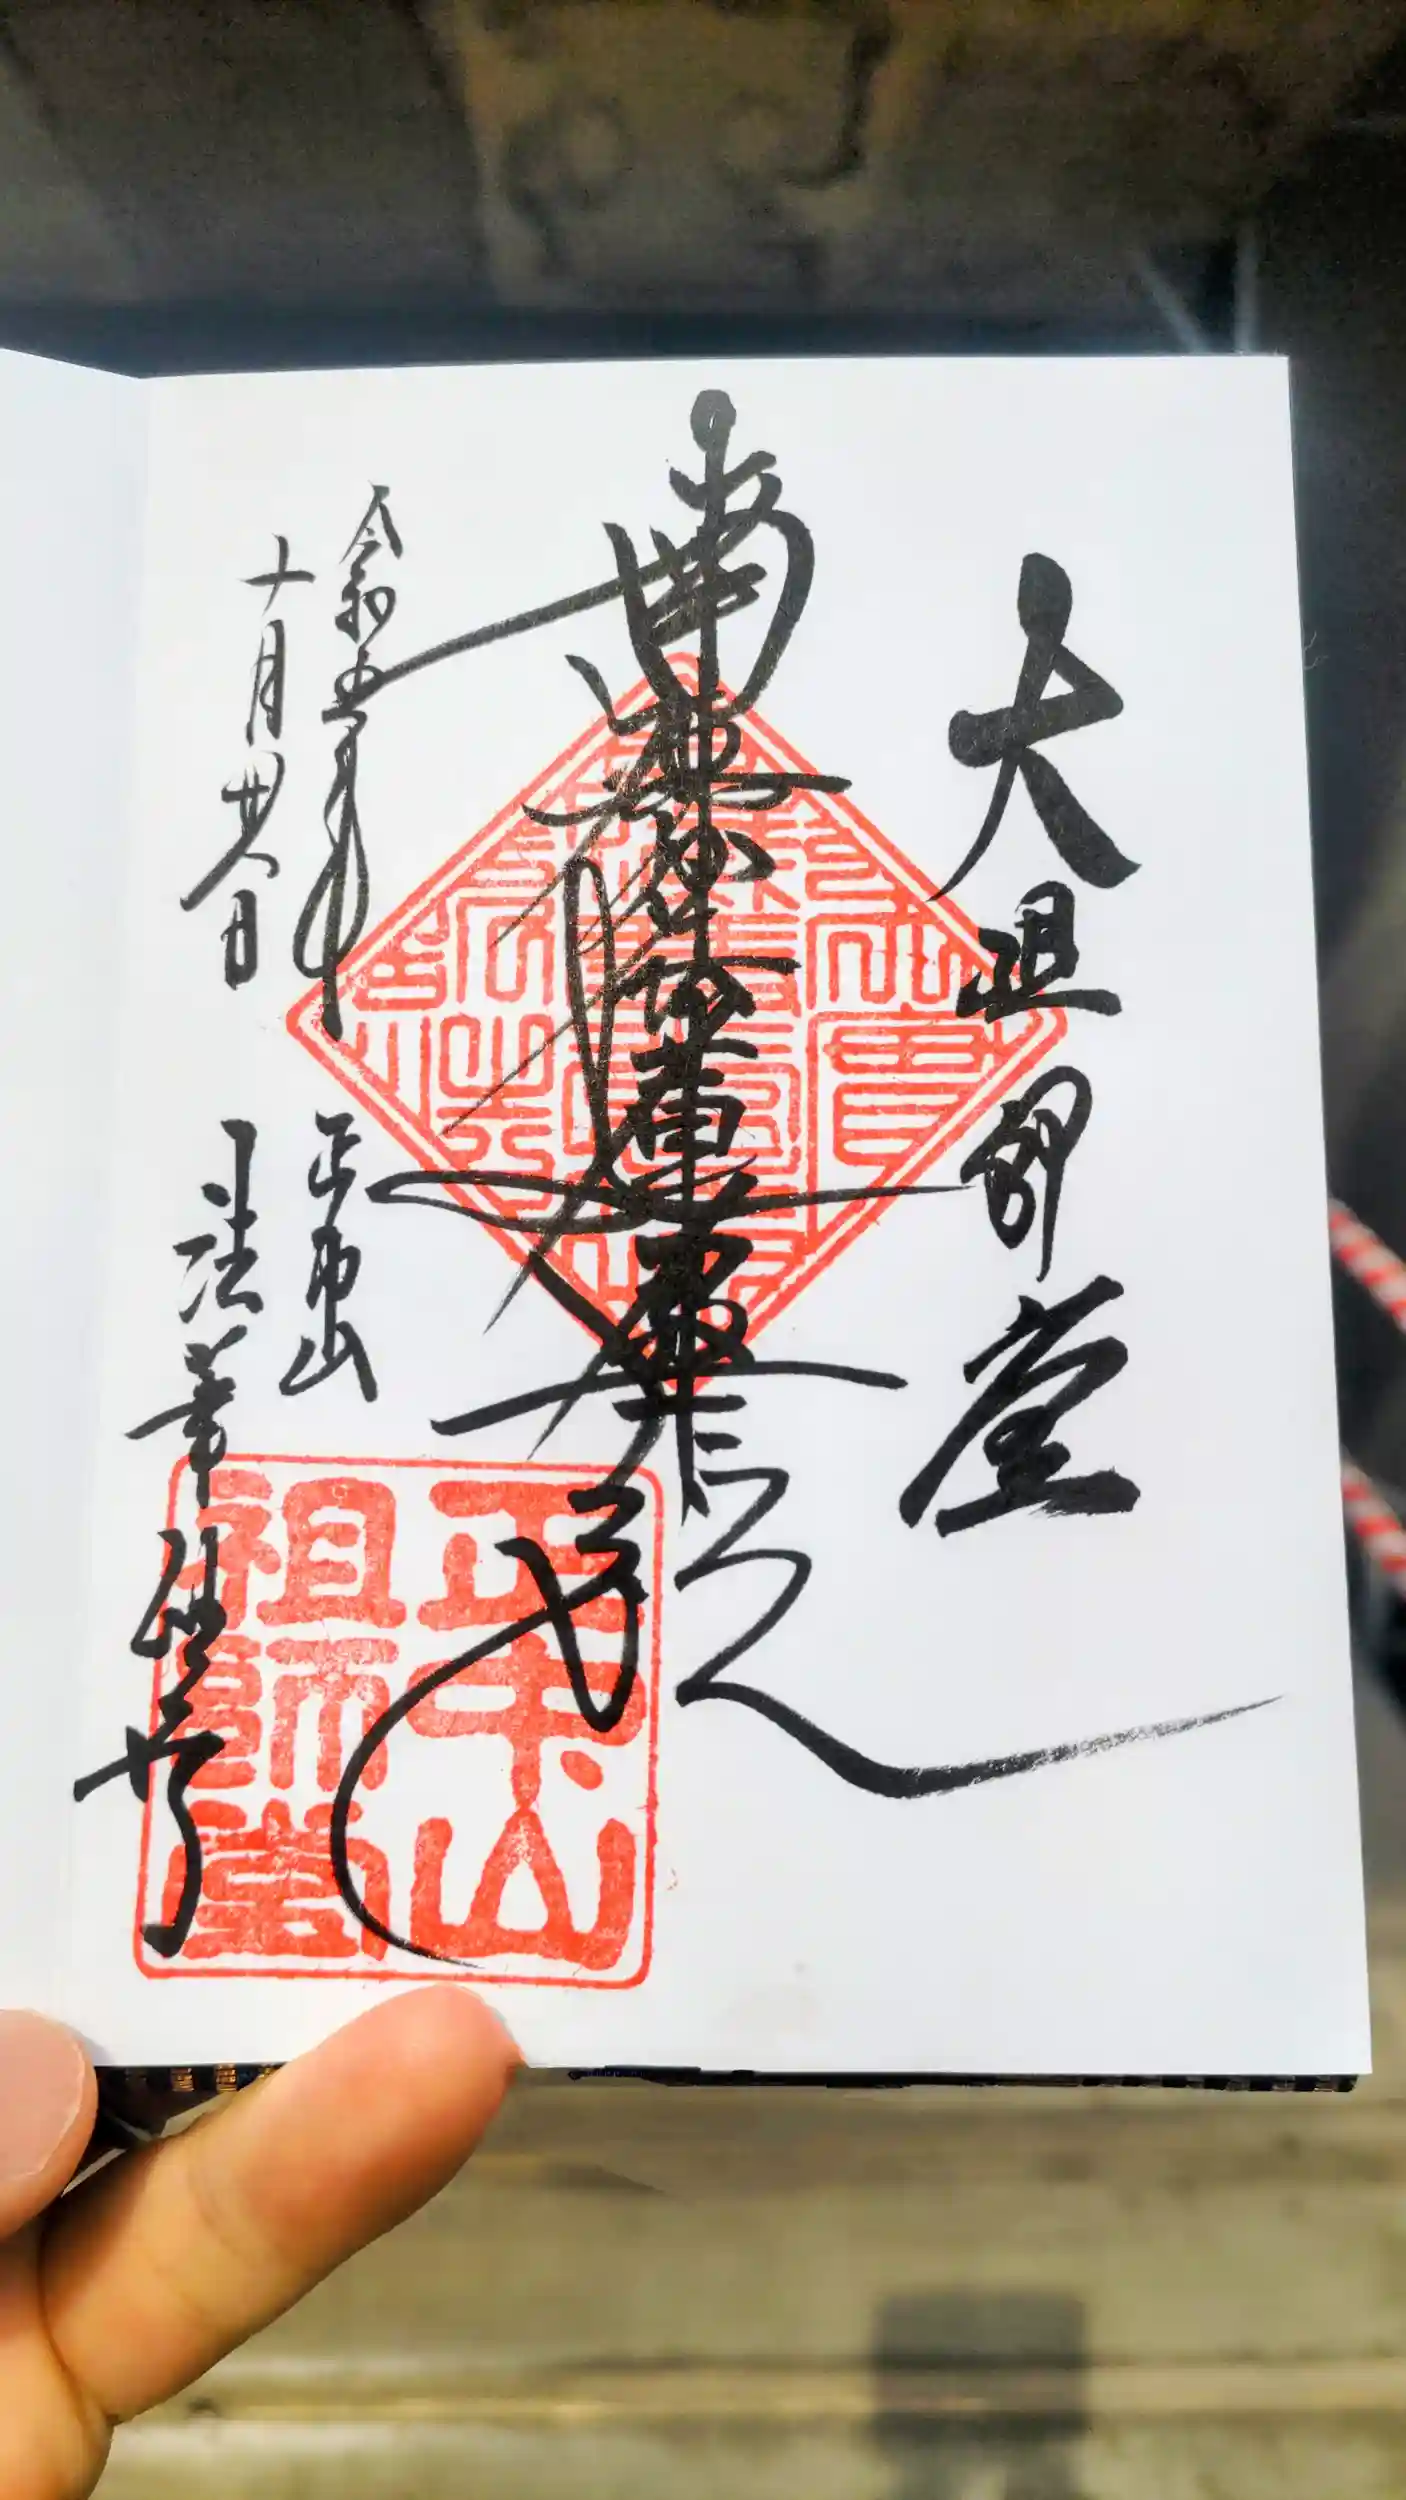 大祖師堂
南無妙法蓮華経
令和五年
十月廿八日
正中山
法華経寺
正中山
祖師堂